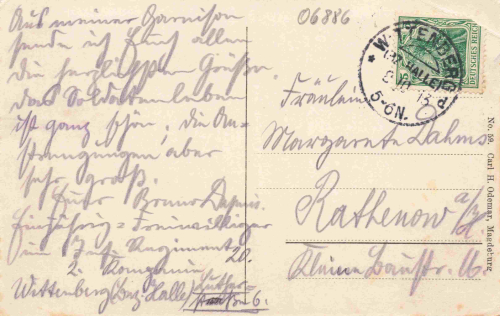 Aus meiner Garnison
sende ich Euch allen
die herzlichsten Grüße.
das Soldatenleben
ist ganz schön, die An-
strengungen aber
sehr groß.
Euer Bruno Dahms.
Einjährig-Freiwilliger
im Inf. Regiment 20.
2. Kompanie
Wittenberg (Bez. Halle) Luther-
strasse 6.
06886
WITTENBERG
(BZ. HALLE)
13
5-6N.
d
DEUTSCHES REICH
Fräulein
Margarete Dahms
Rathenow a/H.
Kleine Baustr. 16
No. 59. Carl H. Odemar, Magdeburg